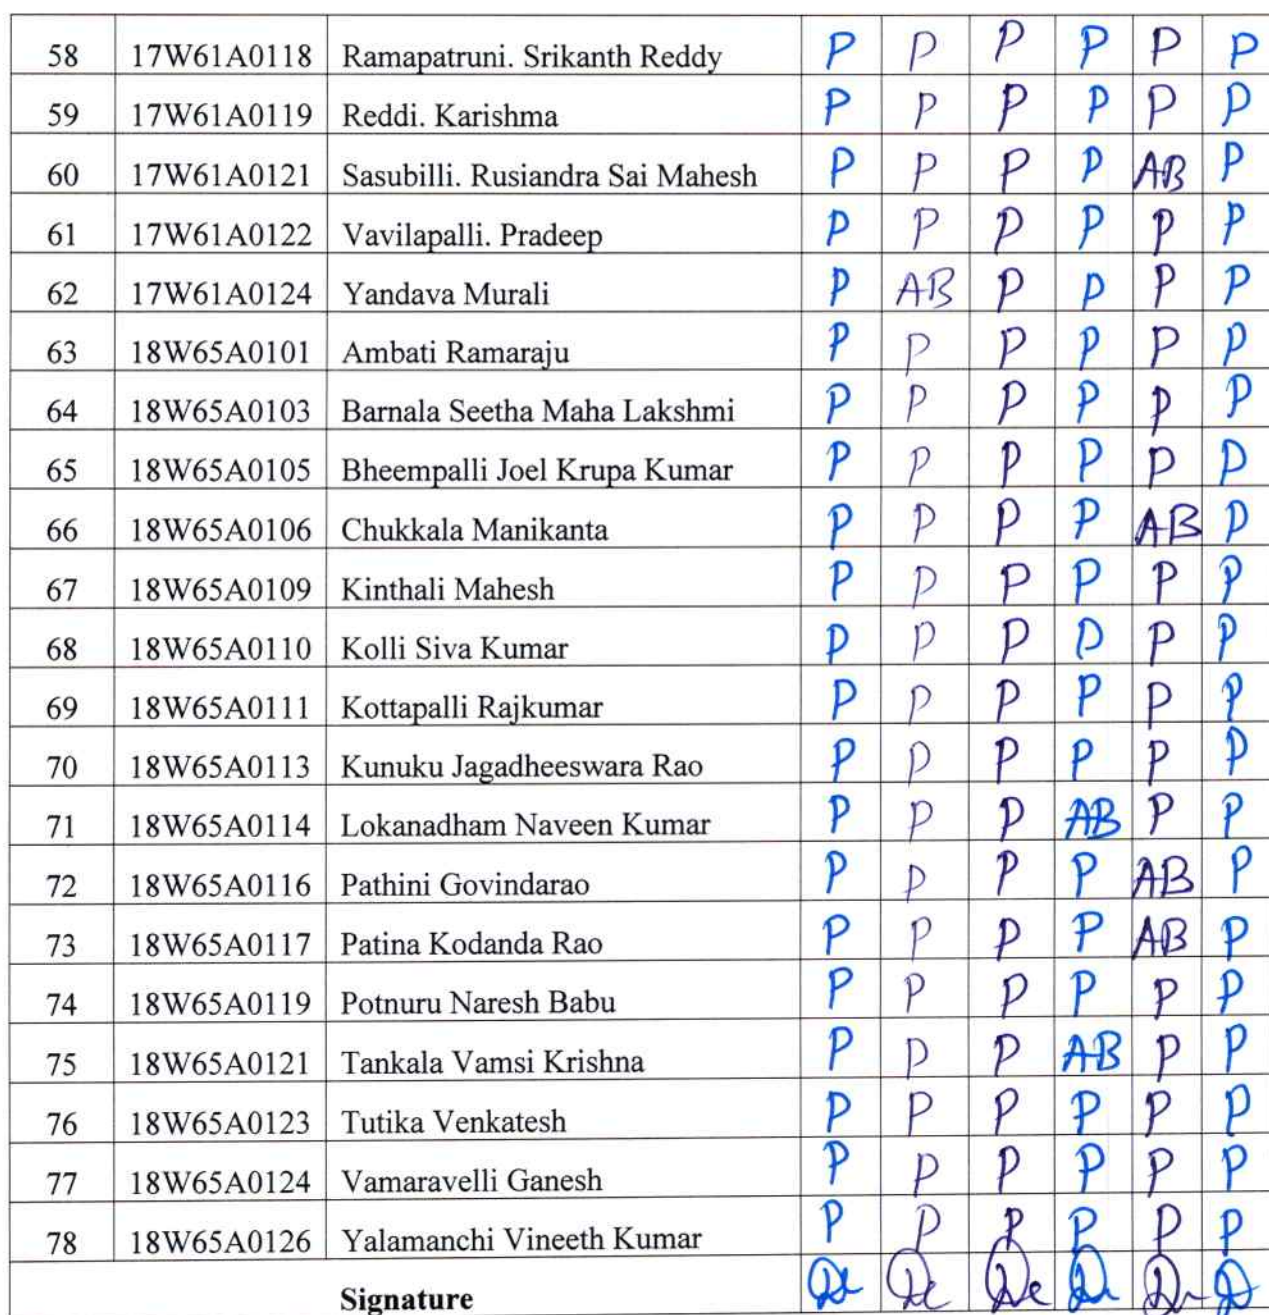 58 17W61A0118 Ramapatruni. Srikanth Reddy P P P P P P
59 17W61A0119 Reddi. Karishma P P P P P P
60 17W61A0121 Sasubilli. Rusiandra Sai Mahesh P P P P AB P
61 17W61A0122 Vavilapalli. Pradeep P P P P P P
62 17W61A0124 Yandava Murali P AB P P P P
63 18W65A0101 Ambati Ramaraju P P P P P P
64 18W65A0103 Barnala Seetha Maha Lakshmi P P P P P P
65 18W65A0105 Bheempalli Joel Krupa Kumar P P P P P P
66 18W65A0106 Chukkala Manikanta P P P P AB P
67 18W65A0109 Kinthali Mahesh P P P P P P
68 18W65A0110 Kolli Siva Kumar P P P P P P
69 18W65A0111 Kottapalli Rajkumar P P P P P P
70 18W65A0113 Kunuku Jagadheeswara Rao P P P P P P
71 18W65A0114 Lokanadham Naveen Kumar P P P AB P P
72 18W65A0116 Pathini Govindarao P P P P AB P
73 18W65A0117 Patina Kodanda Rao P P P P AB P
74 18W65A0119 Potnuru Naresh Babu P P P P P P
75 18W65A0121 Tankala Vamsi Krishna P P P AB P P
76 18W65A0123 Tutika Venkatesh P P P P P P
77 18W65A0124 Vamaravelli Ganesh P P P P P P
78 18W65A0126 Yalamanchi Vineeth Kumar P P P P P P
Signature